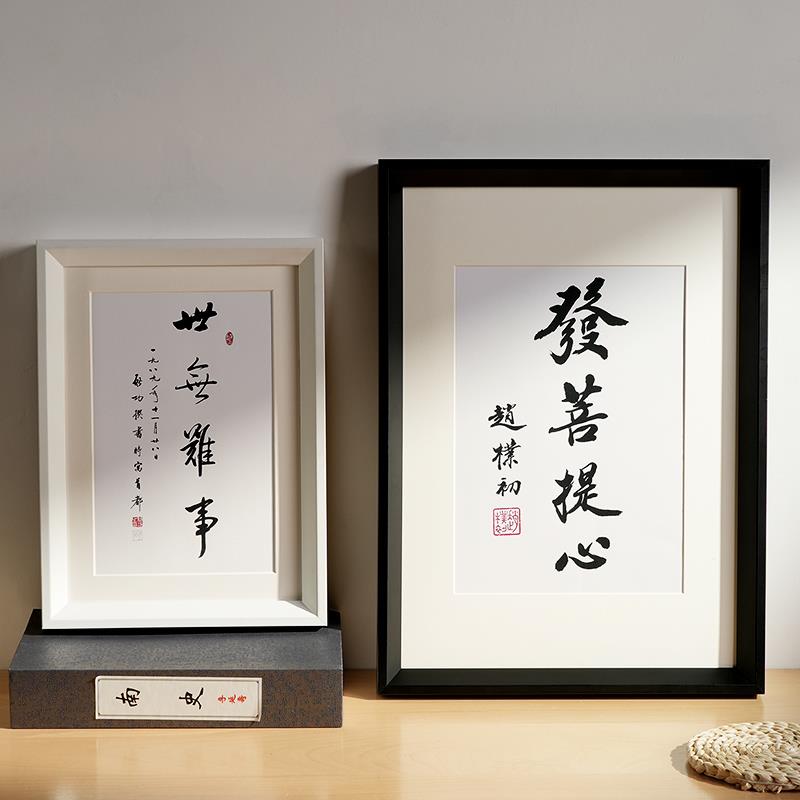 世無難事
一九八九年十一月廿八日
啟功撰書時寓首都
發菩提心
趙樸初
南史